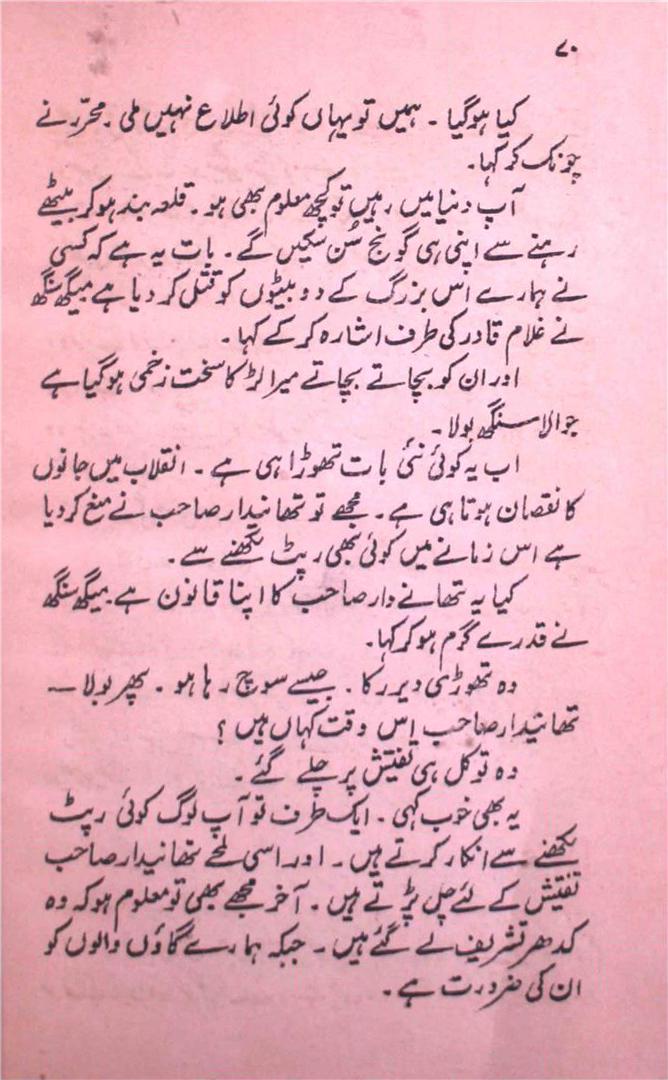 ۷۰
کیا ہوگیا ۔ ہمیں تو یہاں کوئی اطلاع نہیں ملی ۔ محرّر نے
چونک کر کہا۔
آپ دنیا میں رہیں تو کچھ معلوم بھی ہو ۔ قلعہ بند ہو کر بیٹھے
رہنے سے اپنی ہی گونج سُن سکیں گے ۔ بات یہ ہے کہ کسی
نے ہمارے اس بزرگ کے دو بیٹوں کو قتل کر دیا ہے میگھ سنگھ
نے غلام قادر کی طرف اشارہ کر کے کہا ۔
اور ان کو بچاتے بچاتے میرا لڑکا سخت زخمی ہو گیا ہے
جوالا سنگھ بولا ۔
اب یہ کوئی نئی بات تھوڑا ہی ہے ۔ انقلاب میں جانوں
کا نقصان ہوتا ہی ہے ۔ مجھے تو تھانیدار صاحب نے منع کر دیا
ہے اس زمانے میں کوئی بھی رپٹ لکھنے سے ۔
کیا یہ تھانے دار صاحب کا اپنا قانون ہے ۔ میگھ سنگھ
نے قدرے گرم ہو کر کہا۔
وہ تھوڑی دیر رکا ۔ جیسے سوچ رہا ہو ۔ پھر بولا ــ
تھانیدار صاحب اس وقت کہاں ہیں ؟
وہ تو کل ہی تفتیش پر چلے گئے ۔
یہ بھی خوب کہی ۔ ایک طرف تو آپ لوگ کوئی رپٹ
لکھنے سے انکار کرتے ہیں ۔ اور اسی لمحے تھانیدار صاحب
تفتیش کے لئے چل پڑتے ہیں ۔ آخر مجھے بھی تو معلوم ہو کہ وہ
کدھر تشریف لے گئے ہیں ۔ جبکہ ہمارے گاؤں والوں کو
ان کی ضرورت ہے ۔